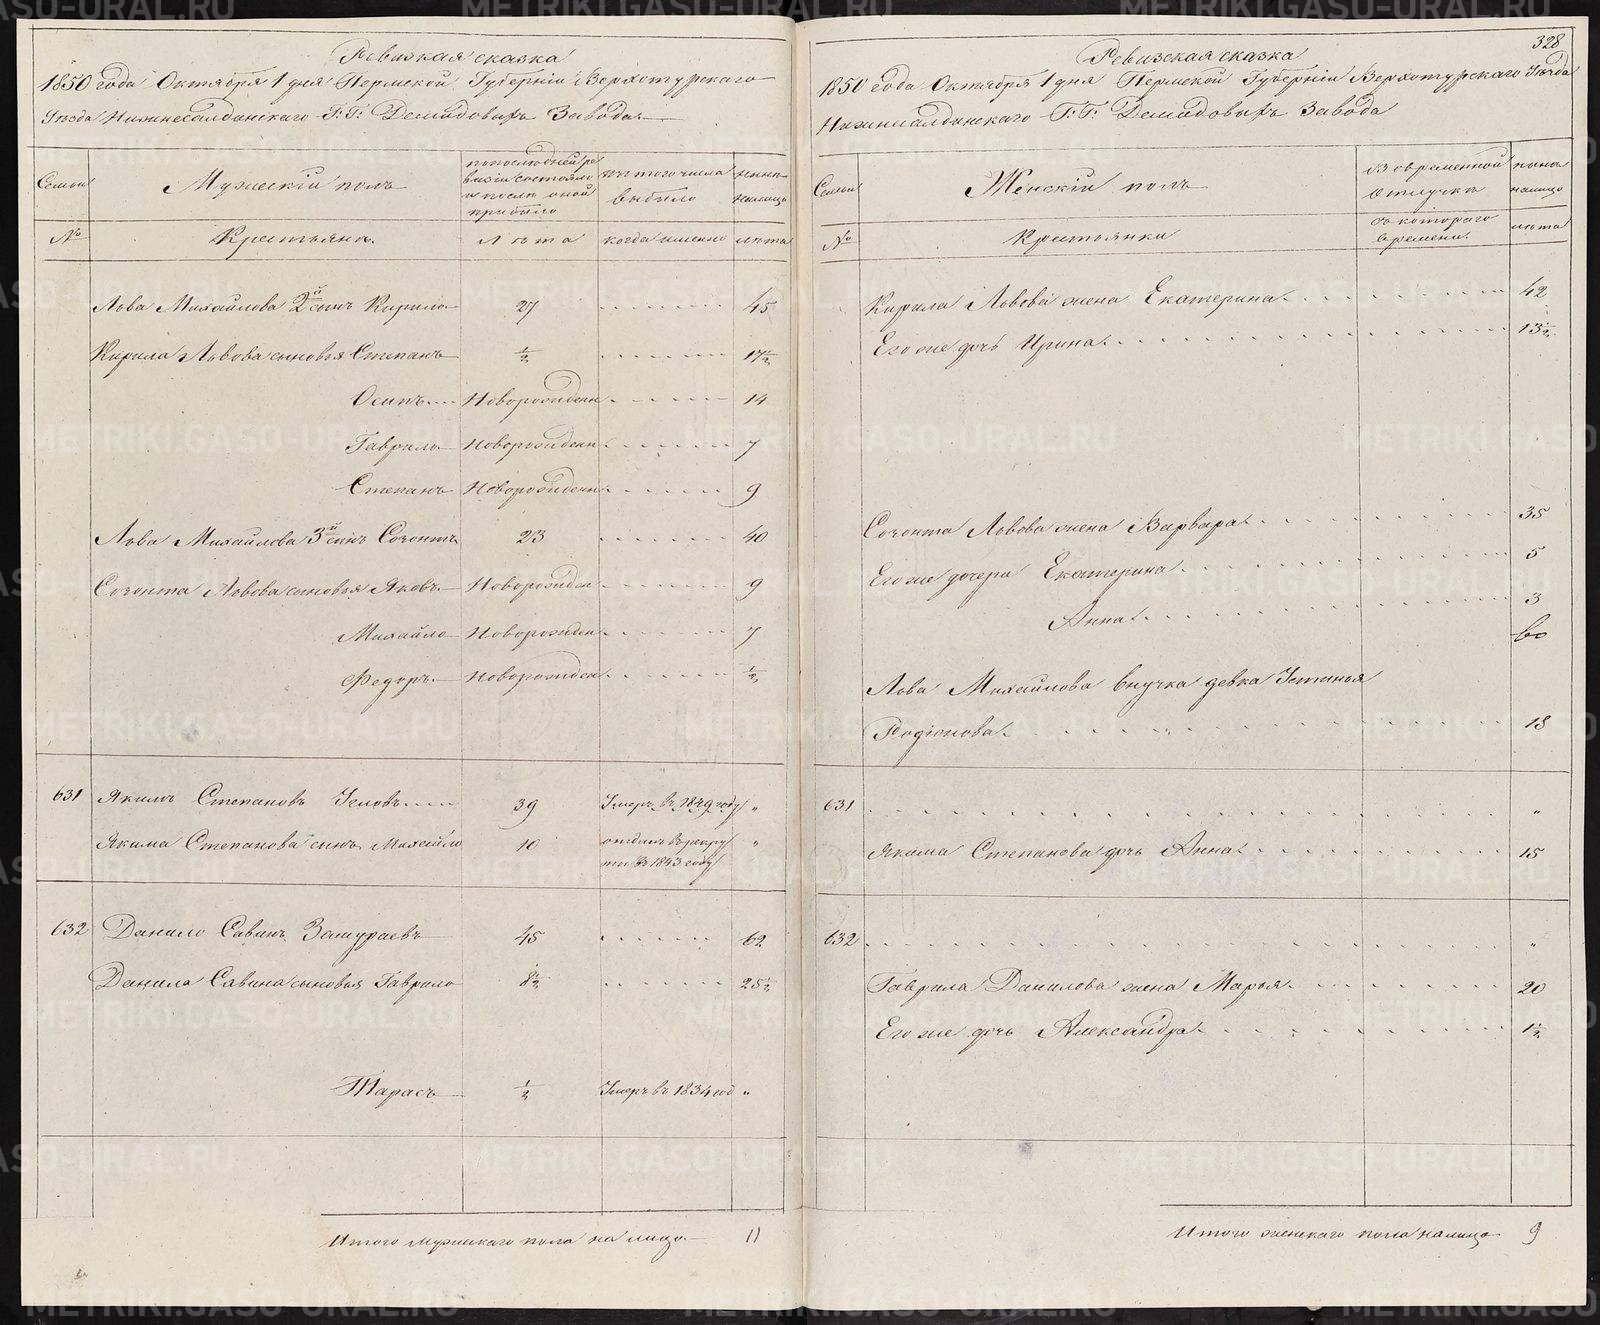 Ревизская сказка
1850 года Октября 1 дня Пермской Губернiи Верхотурскаго
Уезда Нижнесалдинскаго Г:Г: Демидовыхъ Завода.
Семьи
Мужескiй полъ
по последней ре
визiи состояло
и после оной
прибыло
изъ того числа
выбыло
ныне
налицо
№
Крестьяне.
Лета
когда именно
лета
Льва Михайлова 2й сынъ Кирило 27 45
Кирила Львова сыновья Степанъ ½ 17½
Осипъ Новорожденн 14
Гаврило Новорожденн 7
Степанъ Новорожденн 9
Льва Михайлова 3й сынъ Созонтъ 23 40
Созонта Львова сыновья Яковъ Новорожден 9
Михайло Новорожден 7
Федоръ Новорожден ½
631 Якимъ Степановъ 39 Умеръ въ 1849 году "
Якима Степанова сынъ Михайло 10 отданъ в рекру "
ты в 1843 году
632 Данило Савинъ 45 62
Данила Савина сыновья Гаврило 8½ 25½
Тарасъ ½ Умеръ въ 1834 год "
Итого мужескаго пола на лицо 11
328
Ревизская сказка
1850 года Октября 1 дня Пермской Губернiи Верхотурскаго Уезда
Нижнесалдинскаго Г:Г: Демидовыхъ Завода
Семьи
Женскiй полъ
Во временной
отлучке
ныне
налицо
№
Крестьянки
съ котораго
времени.
лета
Кирила Львова жена Екатерина 42
Его же дочь Ирина 13½
Созонта Львова жена Варвара 35
Его же дочери Екатерина 5
Анна 3
Льва Михайлова внучка девка Устинья
Родiонова 18
631 "
Якима Степанова дочь Анна 15
632 "
Гаврила Данилова жена Марья 20
Его же дочь Александра 1½
Итого женскаго пола налицо 9
METRIKI.GASO-URAL.RU